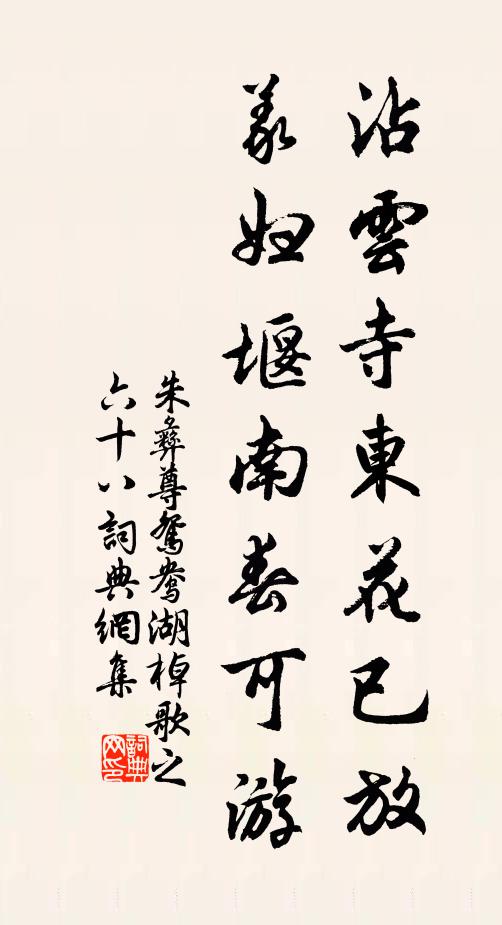 沾雲寺東花已放
義妇堰南春可游
朱彝尊鴛鴦湖棹歌之
六十八詞典網集
詞典
网印